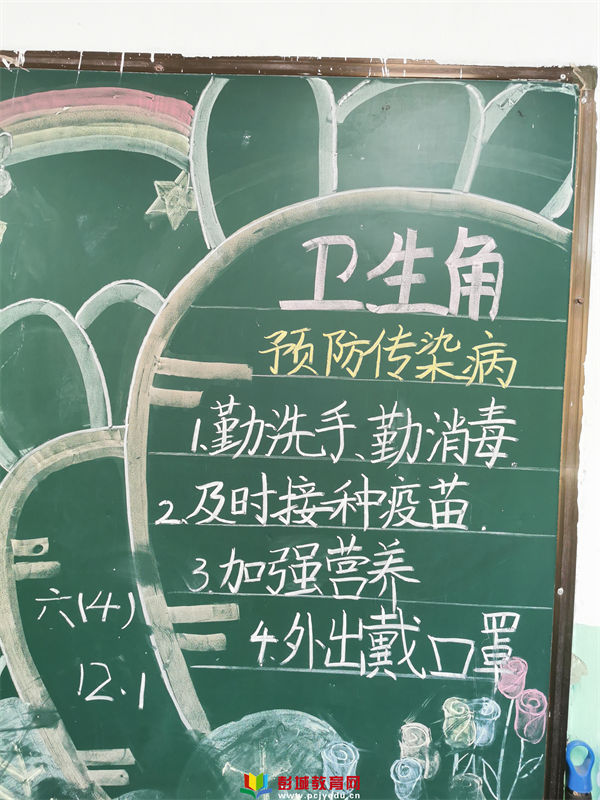 卫生角
预防传染病
1.勤洗手、勤消毒
2.及时接种疫苗.
3.加强营养
4.外出戴口罩
六(4)
12.1
彭城教育网
www.pcjyedu.cn